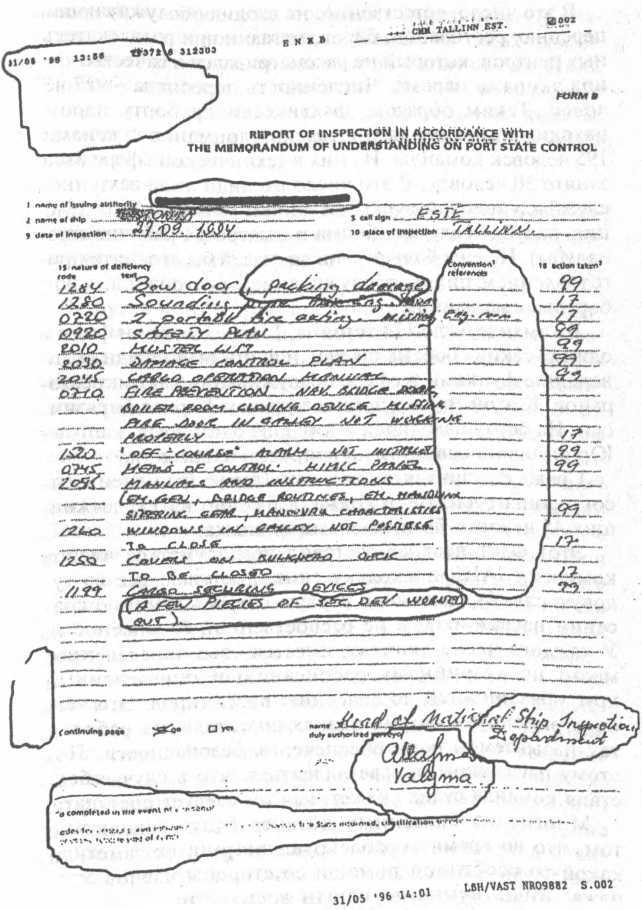 31/05 '96 13186 312303 ENXB CMM TALLINN EST. 002
FORM B
REPORT OF INSPECTION IN ACCORDANCE WITH
THE MEMORANDUM OF UNDERSTANDING ON PORT STATE CONTROL
1 name of issuing authority
2 name of ship ESTONIA 5 call sign ESTE
9 date of inspection 27.09 1994 10 place of inspection TALLINN
15 nature of deficiency Convention¹ references 16 action taken²
code text
1284 Bow door, packing damage 99
1280 Sounding pipe 17
0720 2 portable fire missing Eng. room 17
0920 SAFETY PLAN 99
2010 MUSTER LIST 99
2030 DAMAGE CONTROL PLAN 99
2045 CARGO OPERATION MANUAL 99
0710 FIRE PREVENTION NAV. BRIDGE DOOR,
BOILER ROOM CLOSING DEVICE MISSING
FIRE DOOR IN GALLEY NOT WORKING
PROPERLY 17
1520 "OFF-COURSE" ALARM NOT INSTALLED 99
0745 MEANS OF CONTROL: MIMIC PANEL 99
2055 MANUALS AND INSTRUCTIONS
(EM.GEN, BRIDGE ROUTINES, EM. HANDLING
STEERING GEAR, MANOUVR CHARACTERISTICS 99
1260 WINDOWS IN GALLEY NOT POSSIBLE
TO CLOSE 17
1250 COVERS ON BULKHEAD DECK
TO BE CLOSED 17
1199 CARGO SECURING DEVICES 99
(A FEW PIECIES OF SEC. DEV WORNED
OUT).
Continuing page no yes
name Head of National Ship Inspection
duly authorized Department
completed in the event of a
LBH/VAST NR09882 S.002
31/05 '96 14:01